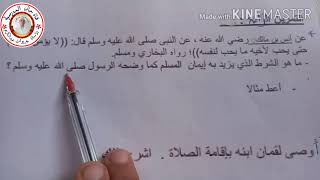 Made with KINEMASTER
عن أنس بن مالك رضي الله عنه ، عن النبي صلى الله عليه وسلم قال: ((لا يؤمن
حتى يحب لأخيه ما يحب لنفسه))؛ رواه البخاري ومسلم.
- ما هو الشرط الذي يزيد به إيمان المسلم كما وضحه الرسول صلى الله عليه وسلم ؟
- أعط مثالا
أوصى لقمان ابنه بإقامة الصلاة .